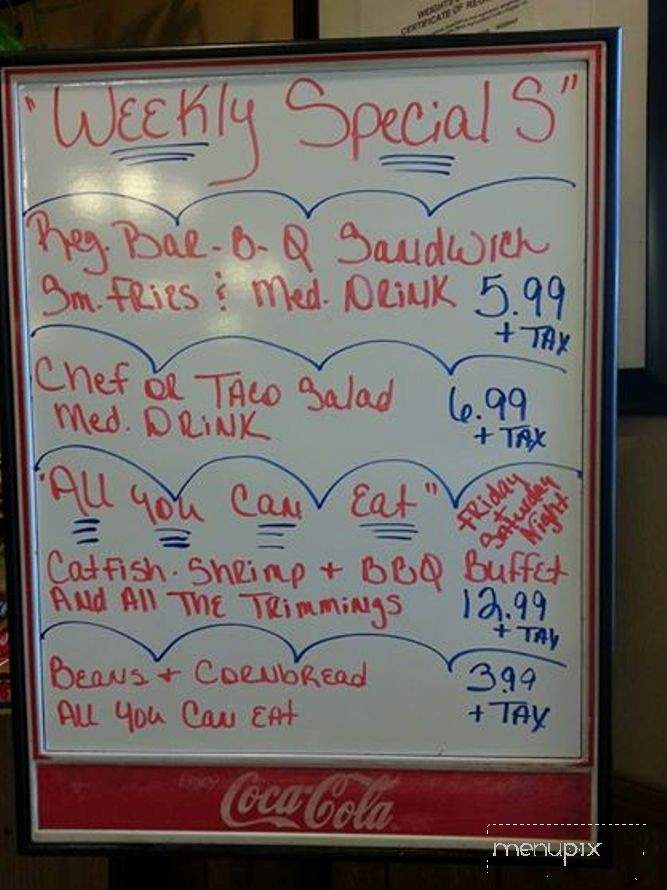 WEIGHTS
CERTIFICATE OF REG
"WEEKly SpecialS"
Reg. Bar-B-Q Sandwich
Sm. FRIES & Med. DRINK 5.99
+ TAX
Chef OR TACO Salad 6.99
Med. DRINK + TAX
"All you Can Eat" Friday
+ Saturday
Night
Catfish. Shrimp + BBQ Buffet
And All The Trimmings 12.99
+ TAX
Beans + CORNbRead 3.99
All You Can Eat + TAX
ENJOY
Coca-Cola
menupix